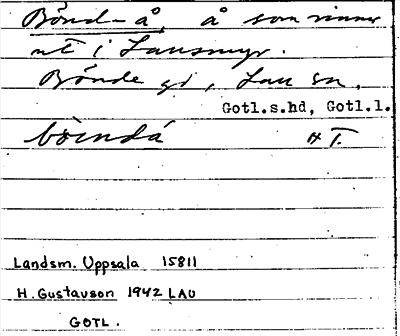 Bönd-å, å som rinner
ut i Lausmyr.
Bönde gd, Lau sn,
Gotl.s.hd, Gotl.l.
bòindá H T.
Landsm. Uppsala 15811
H. Gustavson 1942 LAU
GOTL.